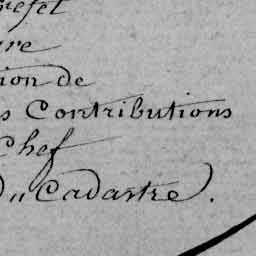 refet
re
ion de
s Contributions
Chef
Du Cadastre).